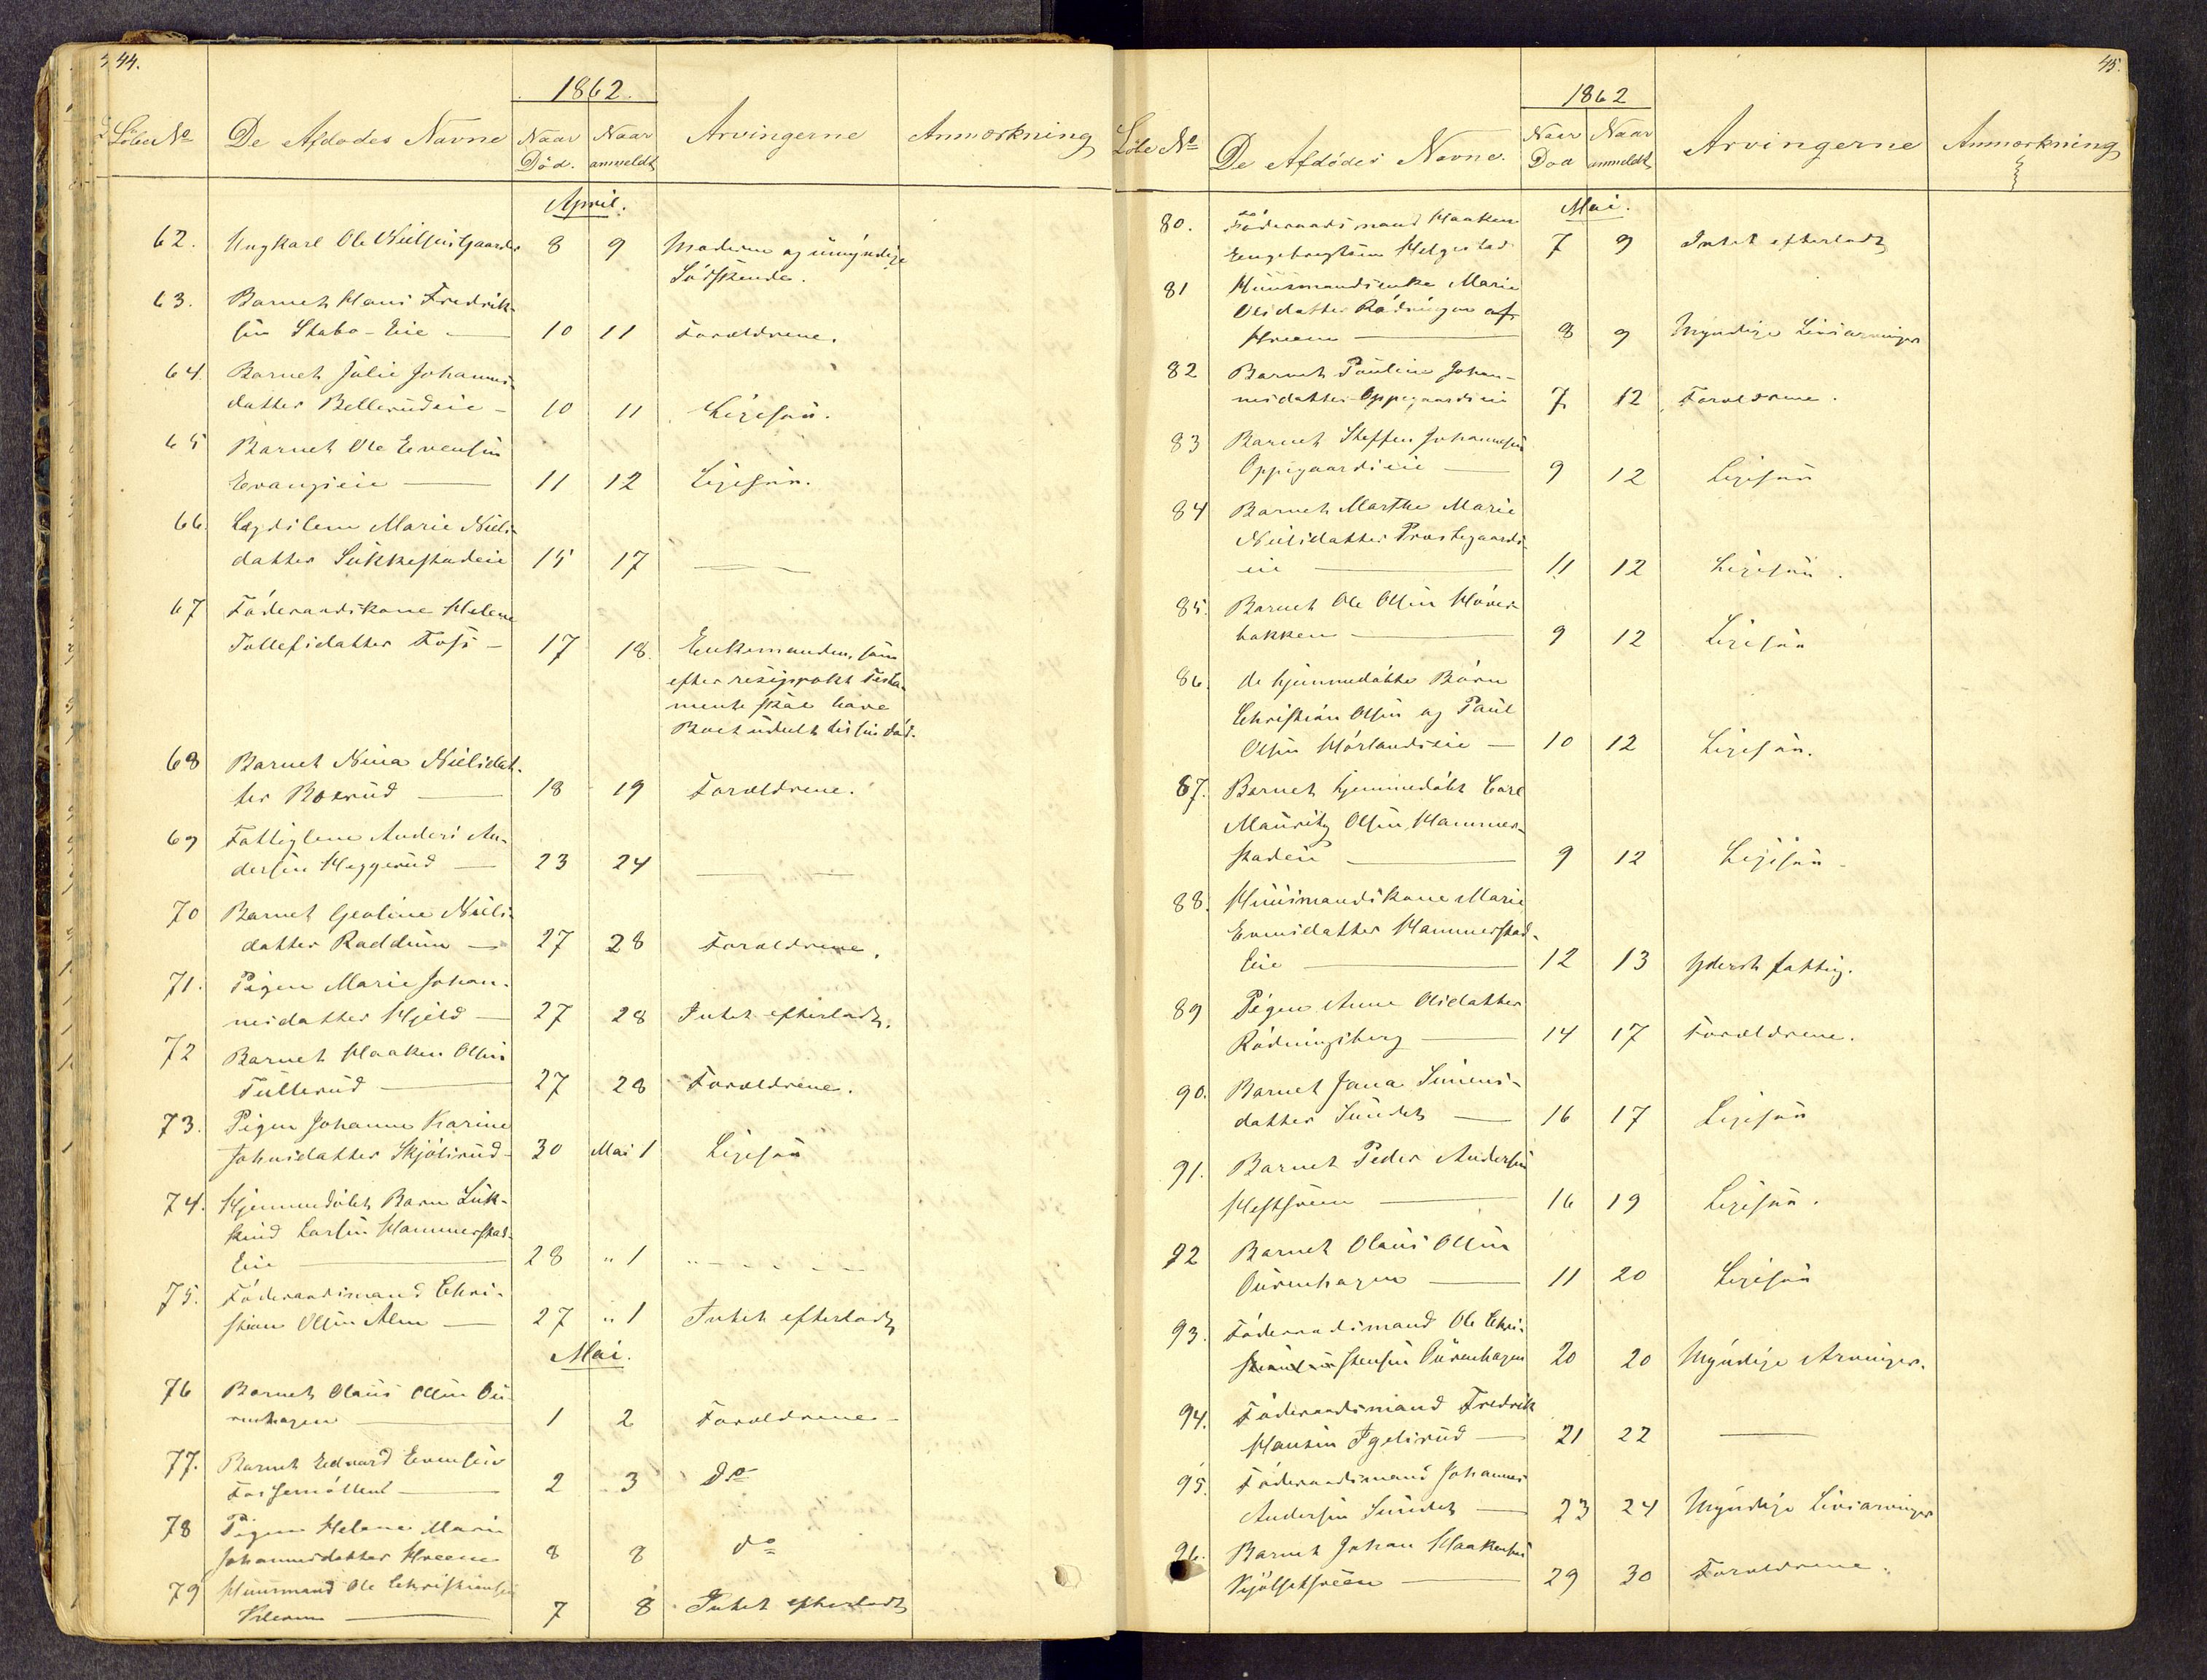 44.
1862.
Löbe No De Afdödes Navne Naar Död. Naar anmeldt Arvingerne Anmærkning
April.
62. Ungkarl Ole Nielsen Gaarder 8 9 Moderen og umyndige
Södskende.
63. Barnet Hans Fredrik-
sen Stabo-Eie 10 11 Forældrene.
64. Barnet Julie Johannes-
datter Bellerudeie 10 11 Ligesaa.
65 Barnet Ole Evensen
Evangseie 11 12 Ligesaa.
66. Lægdslem Marie Niels-
datter Sukkestadeie 15 17
67 Föderaadskone Helene
Tollefsdatter Foss 17 18. Enkemanden, som
efter resiprokt Testa-
mente skal have
Boet udeelt til sin död.
68 Barnet Nina Nielsdat-
ter Boxrud 18 19 Forældrene.
69 Fattiglem Anders An-
dersen Heggerud 23 24
70 Barnet Geoline Niels-
datter Raddum 27 28 Forældrene.
71. Pigen Marie Johan-
nesdatter Hjeld 27 28 Intet efterladt.
72 Barnet Haaken Olsen
Tullerud 27 28 Forældrene.
73. Pigen Johanne Karine
Johnsdatter Skjölsrud 30 Mai 1 Ligesaa
74. Hjemmedöbt Barn
Larsen Hammerstad-
Eie 28 " 1
75. Föderaadsmand Chri-
stian Olsen Alm 27 " 1 Intet efterladt
Mai.
76 Barnet Olaus Olsen Ou-
renhagen 1 2 Forældrene
77. Barnet Edvard Evensen
2 3 Do
78 Pigen Helene Marie
Johannesdatter Hreene 8 8 do
79 Huusmand Ole Christiansen
7 8 Intet efterladt
45.
1862
Löbe No De Afdödes Navne. Naar Död Naar anmeldt Arvingerne Anmærkning
Mai.
80. Föderaadsmand Haaken
Engebregtsen Helgestad 7 9 Intet efterladt
81 Huusmandsenke Marie
Olsdatter Rödningen af
Hreene 8 9 Myndige Livsarvinger
82 Barnet Pauline Johan-
nesdatter Oppegaardseie 7 12 Forældrene.
83 Barnet Steffen Johannesen
Oppegaardseie 9 12 Ligesaa
84 Barnet Marthe Marie
Nielsdatter Prestegaards-
eie 11 12 Ligesaa.
85. Barnet Ole Olsen Höver-
bakken 9 12 Ligesaa
86. de hjemmedöbte Börn
Christian Olsen og Paul
Olsen Hörlandseie 10 12 Ligesaa.
87. Barnet hjemmedöbt Carl
Mauritz Olsen Hammer-
stadeie 9 12 Ligesaa
88. Huusmandskone Marie
Evensdatter Hammerstad-
Eie 12 13 yderst fattig.
89 Pigen Anne Olsdatter
Rödningsberg 14 17 Forældrene.
90. Barnet Jana Simens-
datter Sundet 16 17 Ligesaa
91. Barnet Peder Andersen
16 19 Ligesaa.
92 Barnet Olaus Olsen
Ourenhagen 11 20 Ligesaa
93. Föderaadsmand Ole Chri-
stensen Ourenhagen 20 20 Myndige Arvinger.
94. Föderaadsmand Fredrik
Hansen Igelsrud 21 22
95. Föderaadsmand Johannes
Andersen Sundet 23 24 Myndige Livsarvinger
96. Barnet Johan Haakensen
29 30 Forældrene.